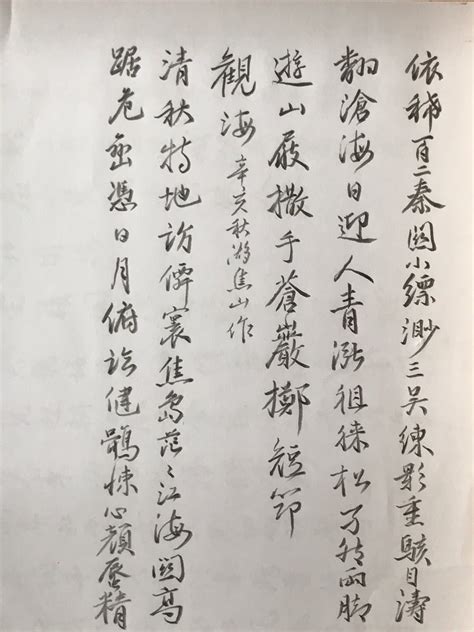 依稀百二秦関小縹渺三吳練影重駭目濤
翻滄海日迎人青漲徂徠松了然兩腳
遊山屐撒手蒼巖擲短筇
觀海 辛亥秋游焦山作
清秋特地訪僊寰焦島茫々江海関高
踞危憑日月俯健鶻悚心顏蜃精